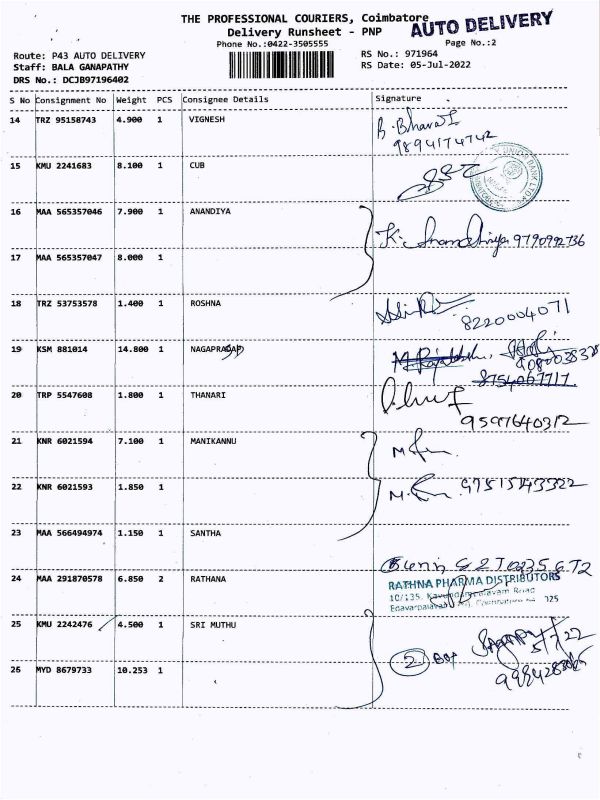 THE PROFESSIONAL COURIERS, Coimbatore
AUTO DELIVERY
Delivery Runsheet - PNP
Phone No.:0422-3505555
Page No.:2
Route: P43 AUTO DELIVERY
RS No.: 971964
Staff: BALA GANAPATHY
RS Date: 05-Jul-2022
DRS No.: DCJB97196402
S No Consignment No Weight PCS Consignee Details Signature
14 TRZ 95158743 4.900 1 VIGNESH
9894174742
15 KMU 2241683 8.100 1 CUB
16 MAA 565357046 7.900 1 ANANDIYA
9790992736
17 MAA 565357047 8.000 1
18 TRZ 53753578 1.400 1 ROSHNA
8220004071
19 KSM 881014 14.800 1 NAGAPRASAD
8754067717
20 TRP 5547608 1.800 1 THANARI
9597640312
21 KNR 6021594 7.100 1 MANIKANNU
22 KNR 6021593 1.850 1
23 MAA 566494974 1.150 1 SANTHA
24 MAA 291870578 6.850 2 RATHANA
RATHNA PHARMA DISTRIBUTORS
10/135,
25 KMU 2242476 4.500 1 SRI MUTHU
5/7/22
2
26 MYD 8679733 10.253 1